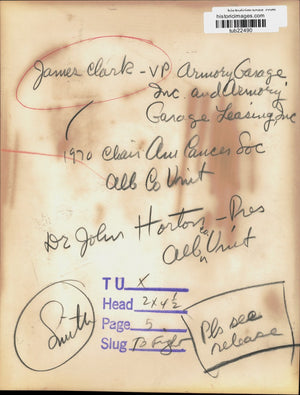 historicimages.com
tub22490
James Clark - VP Armory Garage
Inc. and Armory
Garage Leasing, Inc
1970 Chair Am Cancer Soc
Alb Co Unit
Dr John Horton - Pres
Alb Unit
TU X
Head 2x4½
Page 5
Slug To Fight
Smith
Pls see
release